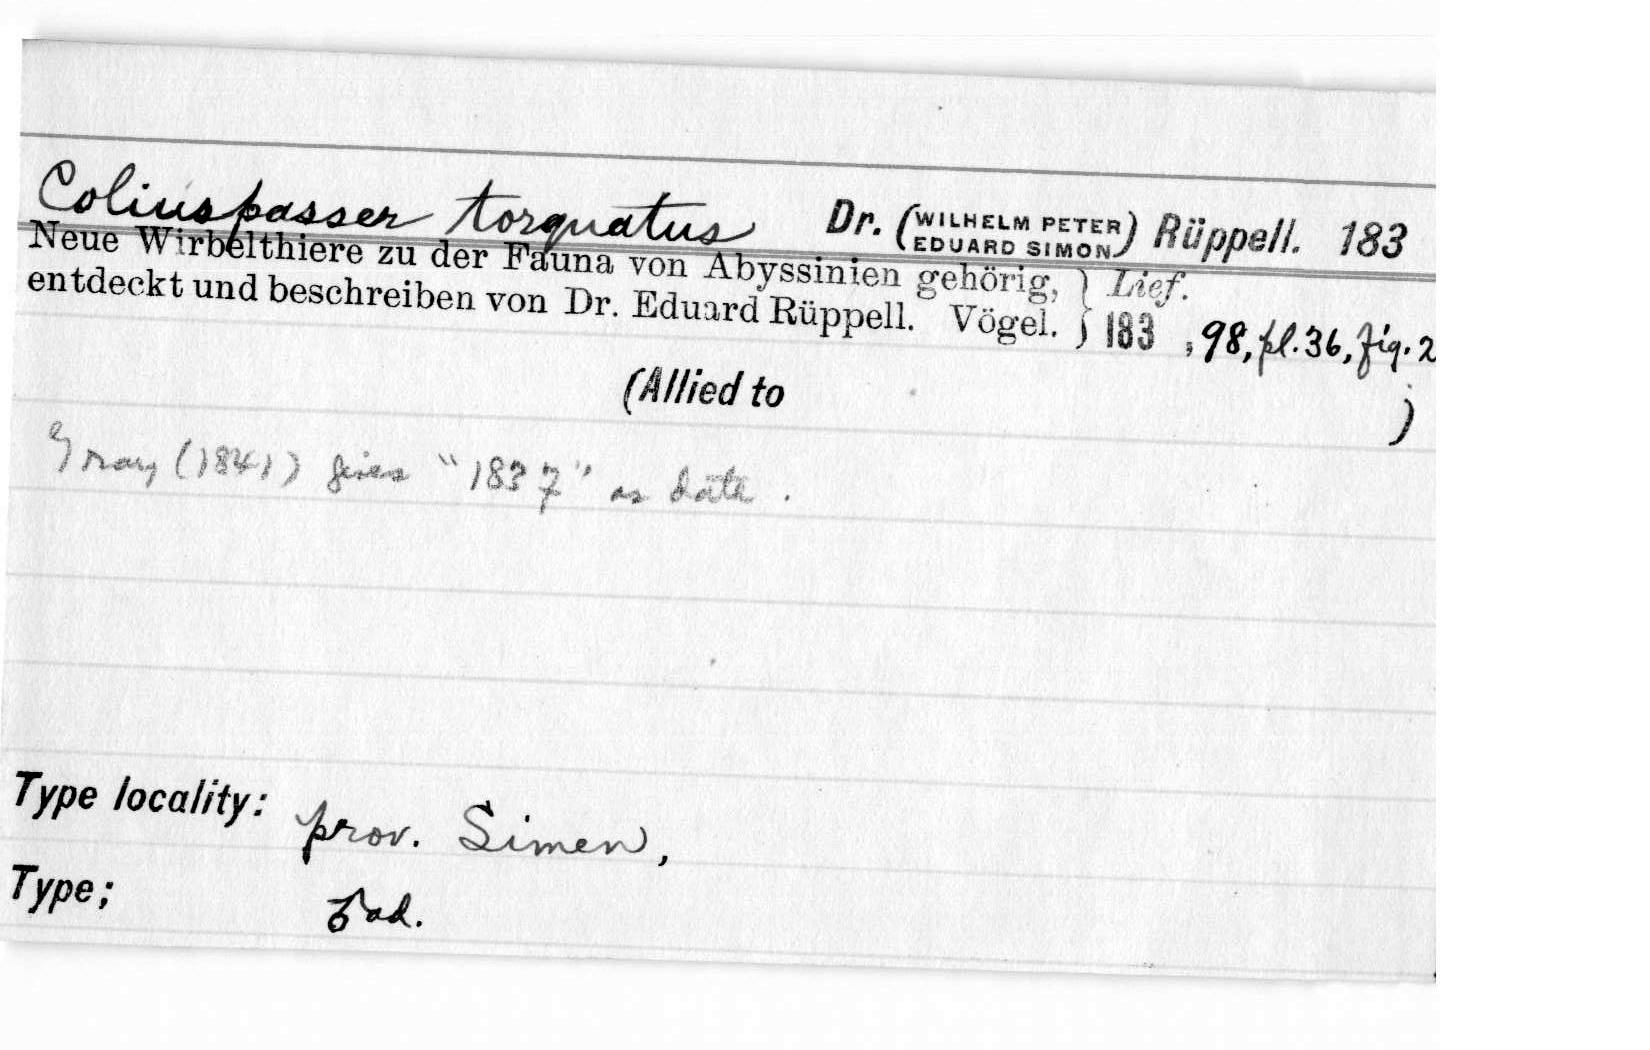 Coliuspasser torquatus Dr. (WILHELM PETER EDUARD SIMON) Rüppell. 183
Neue Wirbelthiere zu der Fauna von Abyssinien gehörig, } Lief.
entdeckt und beschreiben von Dr. Eduard Rüppell. Vögel. } 183 , 98, pl. 36, fig. 2
(Allied to )
Gray (1841) gives "1837" as date.
Type locality: prov. Simen,
Type; ♂ ad.